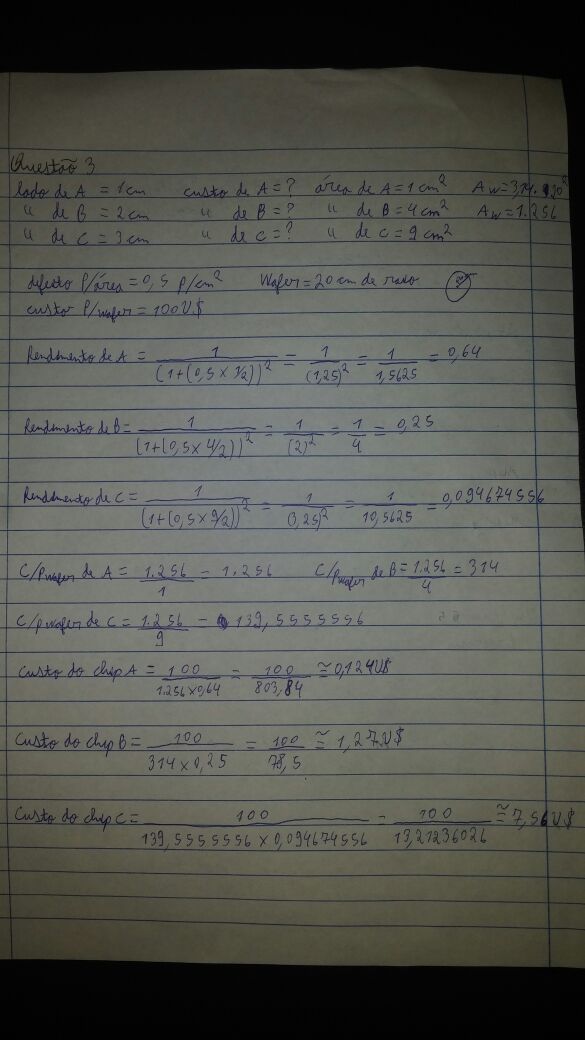 Questão 3
lado de A = 1cm custo de A = ? área de A = 1cm² Aw = 3,14 . 20²
" de B = 2cm " de B = ? " de B = 4cm² Aw = 1.256
" de C = 3cm " de C = ? " de C = 9cm²
defeito P/área = 0,5 p/cm² Wafer = 20 cm de raio
custo P/wafer = 100U$
Rendimento de A = 1/(1+(0,5 x 1/2))² = 1/(1,25)² = 1/1,5625 = 0,64
Rendimento de B = 1/(1+(0,5 x 4/2))² = 1/(2)² = 1/4 = 0,25
Rendimento de C = 1/(1+(0,5 x 9/2))² = 1/(3,25)² = 1/10,5625 = 0,094674556
C/pwafer de A = 1.256/1 = 1.256 C/pwafer de B = 1.256/4 = 314
C/pwafer de C = 1.256/9 = 139,5555556
Custo do chip A = 100/1.256 x 0,64 = 100/803,84 ≅ 0,124U$
Custo do chip B = 100/314 x 0,25 = 100/78,5 ≅ 1,27U$
Custo do chip C = 100/139,5555556 x 0,094674556 = 100/13,21236026 ≅ 7,56U$